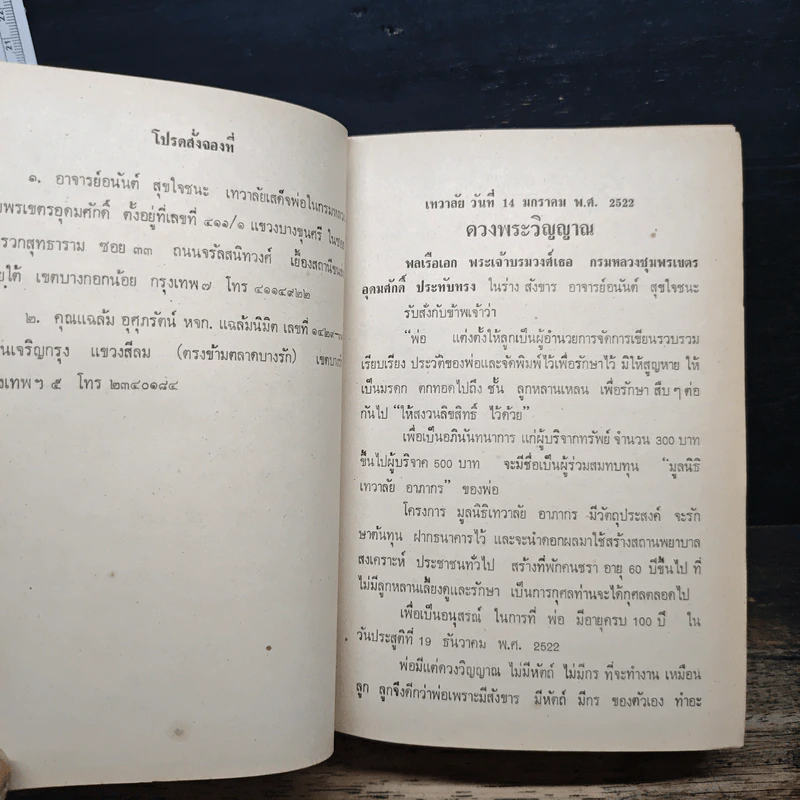 22
21
โปรดสั่งจองที่
๑. อาจารย์อนันต์ สุขใจชนะ เทวาลัยเสด็จพ่อในกรมหลวง
มพรเขตรอุดมศักดิ์ ตั้งอยู่ที่เลขที่ ๔๑๑/๑ แขวงบางขุนศรี ในซอย
รวกสุทธาราม ซอย ๓๓ ถนนจรัลสนิทวงศ์ เยื้องสถานี
ยใต้ เขตบางกอกน้อย กรุงเทพ ๗ โทร ๔๑๑๔๙๒๒
๒. คุณแฉล้ม อุศุภรัตน์ หจก. แฉล้มนิมิต เลขที่ ๑๔๒๙
นเจริญกรุง แขวงสีลม (ตรงข้ามตลาดบางรัก) เขตบาง
งเทพฯ ๕ โทร ๒๓๔๐๑๘๔
เทวาลัย วันที่ 14 มกราคม พ.ศ. 2522
ดวงพระวิญญาณ
พลเรือเอก พระเจ้าบรมวงศ์เธอ กรมหลวงชุมพรเขตร
อุดมศักดิ์ ประทับทรง ในร่าง สังขาร อาจารย์อนันต์ สุขใจชนะ
รับสั่งกับข้าพเจ้าว่า
“พ่อ แต่งตั้งให้ลูกเป็นผู้อำนวยการจัดการเขียนรวบรวม
เรียบเรียง ประวัติของพ่อและจัดพิมพ์ไว้เพื่อรักษาไว้ มิให้สูญหาย ให้
เป็นมรดก ตกทอดไปถึง ชั้น ลูกหลานเหลน เพื่อรักษา สืบ ๆ ต่อ
กันไป “ให้สงวนลิขสิทธิ์ ไว้ด้วย”
เพื่อเป็นอภินันทนาการ แก่ผู้บริจาคทรัพย์ จำนวน 300 บาท
ขึ้นไปผู้บริจาค 500 บาท จะมีชื่อเป็นผู้ร่วมสมทบทุน “มูลนิธิ
เทวาลัย อาภากร” ของพ่อ
โครงการ มูลนิธิเทวาลัย อาภากร มีวัตถุประสงค์ จะรัก
ษาต้นทุน ฝากธนาคารไว้ และจะนำดอกผลมาใช้สร้างสถานพยาบาล
สงเคราะห์ ประชาชนทั่วไป สร้างที่พักคนชรา อายุ 60 ปีขึ้นไป ที่
ไม่มีลูกหลานเลี้ยงดูและรักษา เป็นการกุศลท่านจะได้กุศลตลอดไป
เพื่อเป็นอนุสรณ์ ในการที่ พ่อ มีอายุครบ 100 ปี ใน
วันประสูติที่ 19 ธันวาคม พ.ศ. 2522
พ่อมีแต่ดวงวิญญาณ ไม่มีหัตถ์ ไม่มีกร ที่จะทำงาน เหมือน
ลูก ลูกจึงดีกว่าพ่อเพราะมีสังขาร มีหัตถ์ มีกร ของตัวเอง ทำอะ